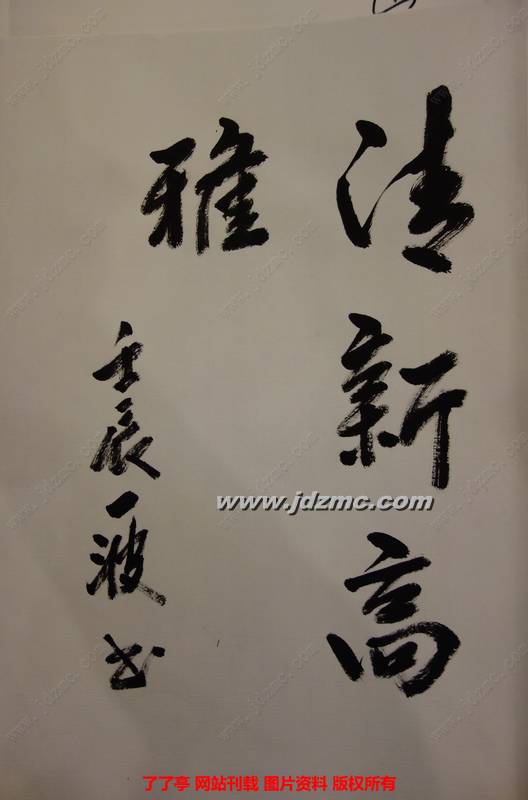 清新高
雅
壬辰一波书
www.jdzmc.com
了了亭 网站刊载 图片资料 版权所有